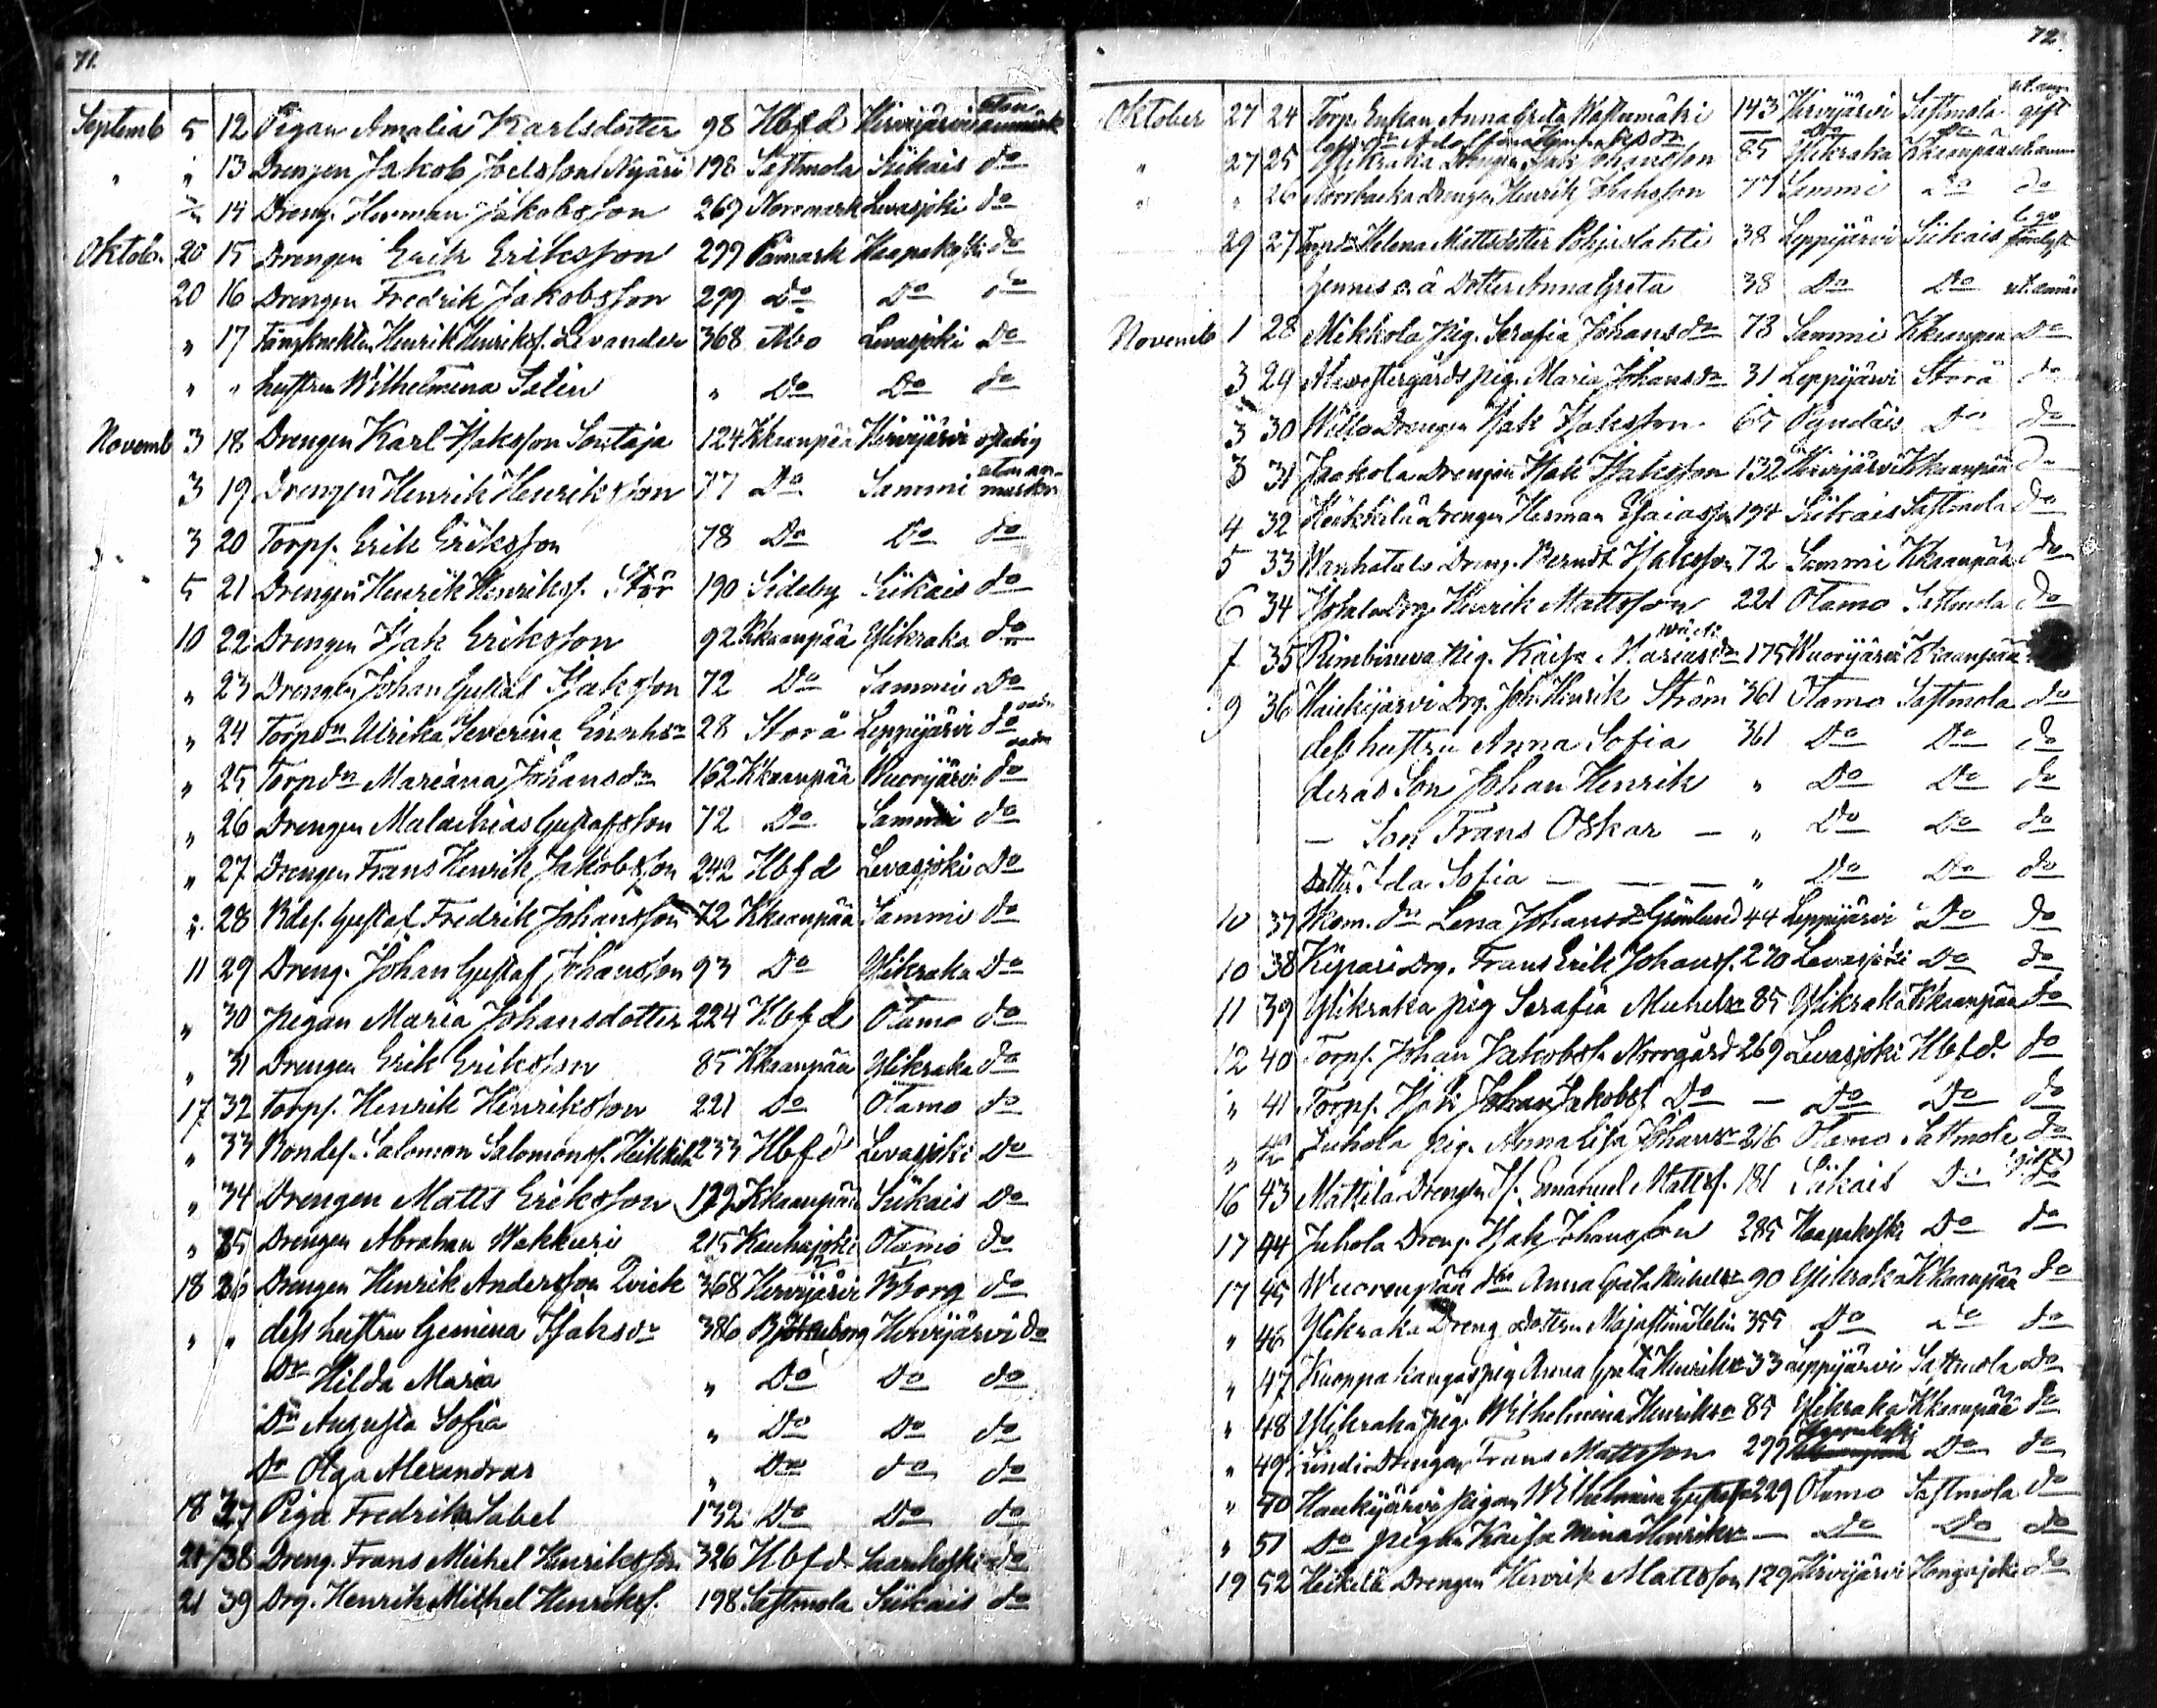 71.
Septemb 5 12 Pigan Amalia Karlsdotter 98 Hbfd Hirvijärvi utan anmärk
" " 13 Drengen Jakob Joelsson Nyäri 198 Sastmola Siikais do
14 Dreng. Herman Jakobsson 269 Norrmark Levasjoki do
Oktob. 20 15 Drengen Erik Eriksson 299 Påmark Haapakoski do
20 16 Drengen Fredrik Jakobsson 299 Do Do do
" 17 Henrik Henriksf. Levander 368 Åbo Levasjoki Do
" " hustru Wilhelmina Selin " Do Do do
Novemb 3 18 Drengen Karl Isaksson Sontaja 124 Kkaanpää Hirvijärvi ostadig
3 19 Drengen Henrik Henriksson 77 Do Sammi utan anmärkn
3 20 Torpf. Erik Eriksson 78 Do Do do
5 21 Drengen Henrik Henriksf. Stor 190 Sideby Siikais do
10 22 Drengen Isak Eriksson 92 Kkaanpää Ylikraka do
" 23 Drengen Johan Gustaf Isaksson 72 Do Sammi Do
" 24 Torpdn Ulrika Severina Enoksdr 28 Storå Leppijärvi do
" 25 Torpdn Mariana Johansdr 162 Kkaanpää Wuorijärvi do
" 26 Drengen Malachias Gustafsson 72 Do Sammi do
" 27 Drengen Frans Henrik Jakobsson 242 Hbfd Levasjoki Do
" 28 Bdef. Gustaf Fredrik Johansson 72 Kkaanpää Sammi do
11 29 Dreng. Johan Gustaf Johansson 93 Do Ylikraka Do
" 30 pigan Maria Johansdotter 224 Hbfd Otamo do
" 31 Drengen Erik Eriksson 85 Kkaanpää Ylikraka do
17 32 Torpf. Henrik Henriksson 221 Do Otamo do
" 33 Bondef. Salomon Salomonsf. Heikkilä 233 Hbfd Levasjoki Do
" 34 Drengen Matts Eriksson 179 Kkaanpää Siikais Do
" 35 Drengen Abraham Wakkuri 215 Kauhajoki Otamo do
18 36 Drengen Henrik Andersson Qvick 368 Hirvijärvi Bborg do
" " dess hustru Gemina Isaksdr 386 Björneborg Hirvijärvi do
Dr Hilda Maria " Do Do do
Dr Augusta Sofia " Do Do do
Dr Olga Alexandra " Do do do
18 37 Piga Fredrika Sabel 132 Do Do do
21 38 Dreng. Frans Michel Henriksson 326 Hbfd Saarikoski do
21 39 Drg. Henrik Michel Henriksf. 198 Sastmola Siikais do
72.
Oktober 27 24 Torp. Enkan Anna Greta Wästinmäki 143 Hirvijärvi Sastmola gift
" 27 25 Ylikraka Drengen Isak Johansson 85 Ylikraka Kkaanpää
" " 26 Norrbacka Drengen Henrik Johansson 77 Sammi Do do
29 27 Helena Mattsdotter Pohjoslahti 38 Leppijärvi Siikais
hennes o. ä. Dotter Anna Greta 38 Do Do
Novemb 1 28 Mikkola pig. Serafia Johansdr 73 Sammi Kkaanpää Do
3 29 pig. Maria Johansdr 31 Leppijärvi Storå do
3 30 Drengen Isak Isaksson 65 Do do
3 31 Jaakola Drengen Isak Isaksson 132 Hirvijärvi Kkaanpää do
4 32 Heikkilä Drengen Herman Esaiasson 194 Siikais Sastmola do
5 33 Wanhatalo Dreng. Berndt Isaksson 72 Sammi Kkaanpää do
6 34 Drg. Henrik Mattsson 221 Otamo Sastmola do
7 35 pig. Kaisa Mariasdr 175 Wuorijärvi Kkaanpää
9 36 Haukijärvi Drg. Joh. Henrik Ström 361 Otamo Sastmola do
dess hustru Anna Sofia 361 Do Do do
deras Son Johan Henrik " Do Do do
— Son Frans Oskar — " Do Do do
Dotter Ida Sofia — — — " Do Do do
10 37 Lena Johansdr Grönlund 44 Leppijärvi Do do
10 38 Drg. Frans Erik Johansf. 270 Levasjoki Do do
11 39 Ylikraka pig Serafia Michelsdr 85 Ylikraka Kkaanpää do
12 40 Torpf. Johan Jakobsf. Norrgård 269 Levasjoki Hbfd. do
" 41 Torpf. Isak Johan Jakobsf. Do — Do Do do
" 42 Juhola pig. Anna Lisa Johansdr 216 Otamo Sastmola do
16 43 Mattila Drengen Emanuel Mattsf. 181 Siikais Do (gift)
17 44 Juhola Dreng. Isak Johansson 285 Haapakoski Do do
17 45 Wuorenpää Anna Greta Michelsdr 90 Ylikraka Kkaanpää do
" 46 Ylikraka Dreng 355 Do Do do
" 47 Kuoppakangas pig Anna Greta Henriksdr 33 Leppijärvi Sastmola do
" 48 Ylikraka pig. Wilhelmina Henriksdr 85 Ylikraka Kkaanpää do
" 49 Drengen Frans Mattsson 299 Haapakoski Do do
" 50 Haukijärvi pigan Wilhelmina Gustafsdr 229 Otamo Sastmola do
" 51 Do pigan Kaisa Mina Henriksdr — Do Do do
19 52 Heikkilä Drengen Henrik Mattsson 129 Hirvijärvi Hongojoki do